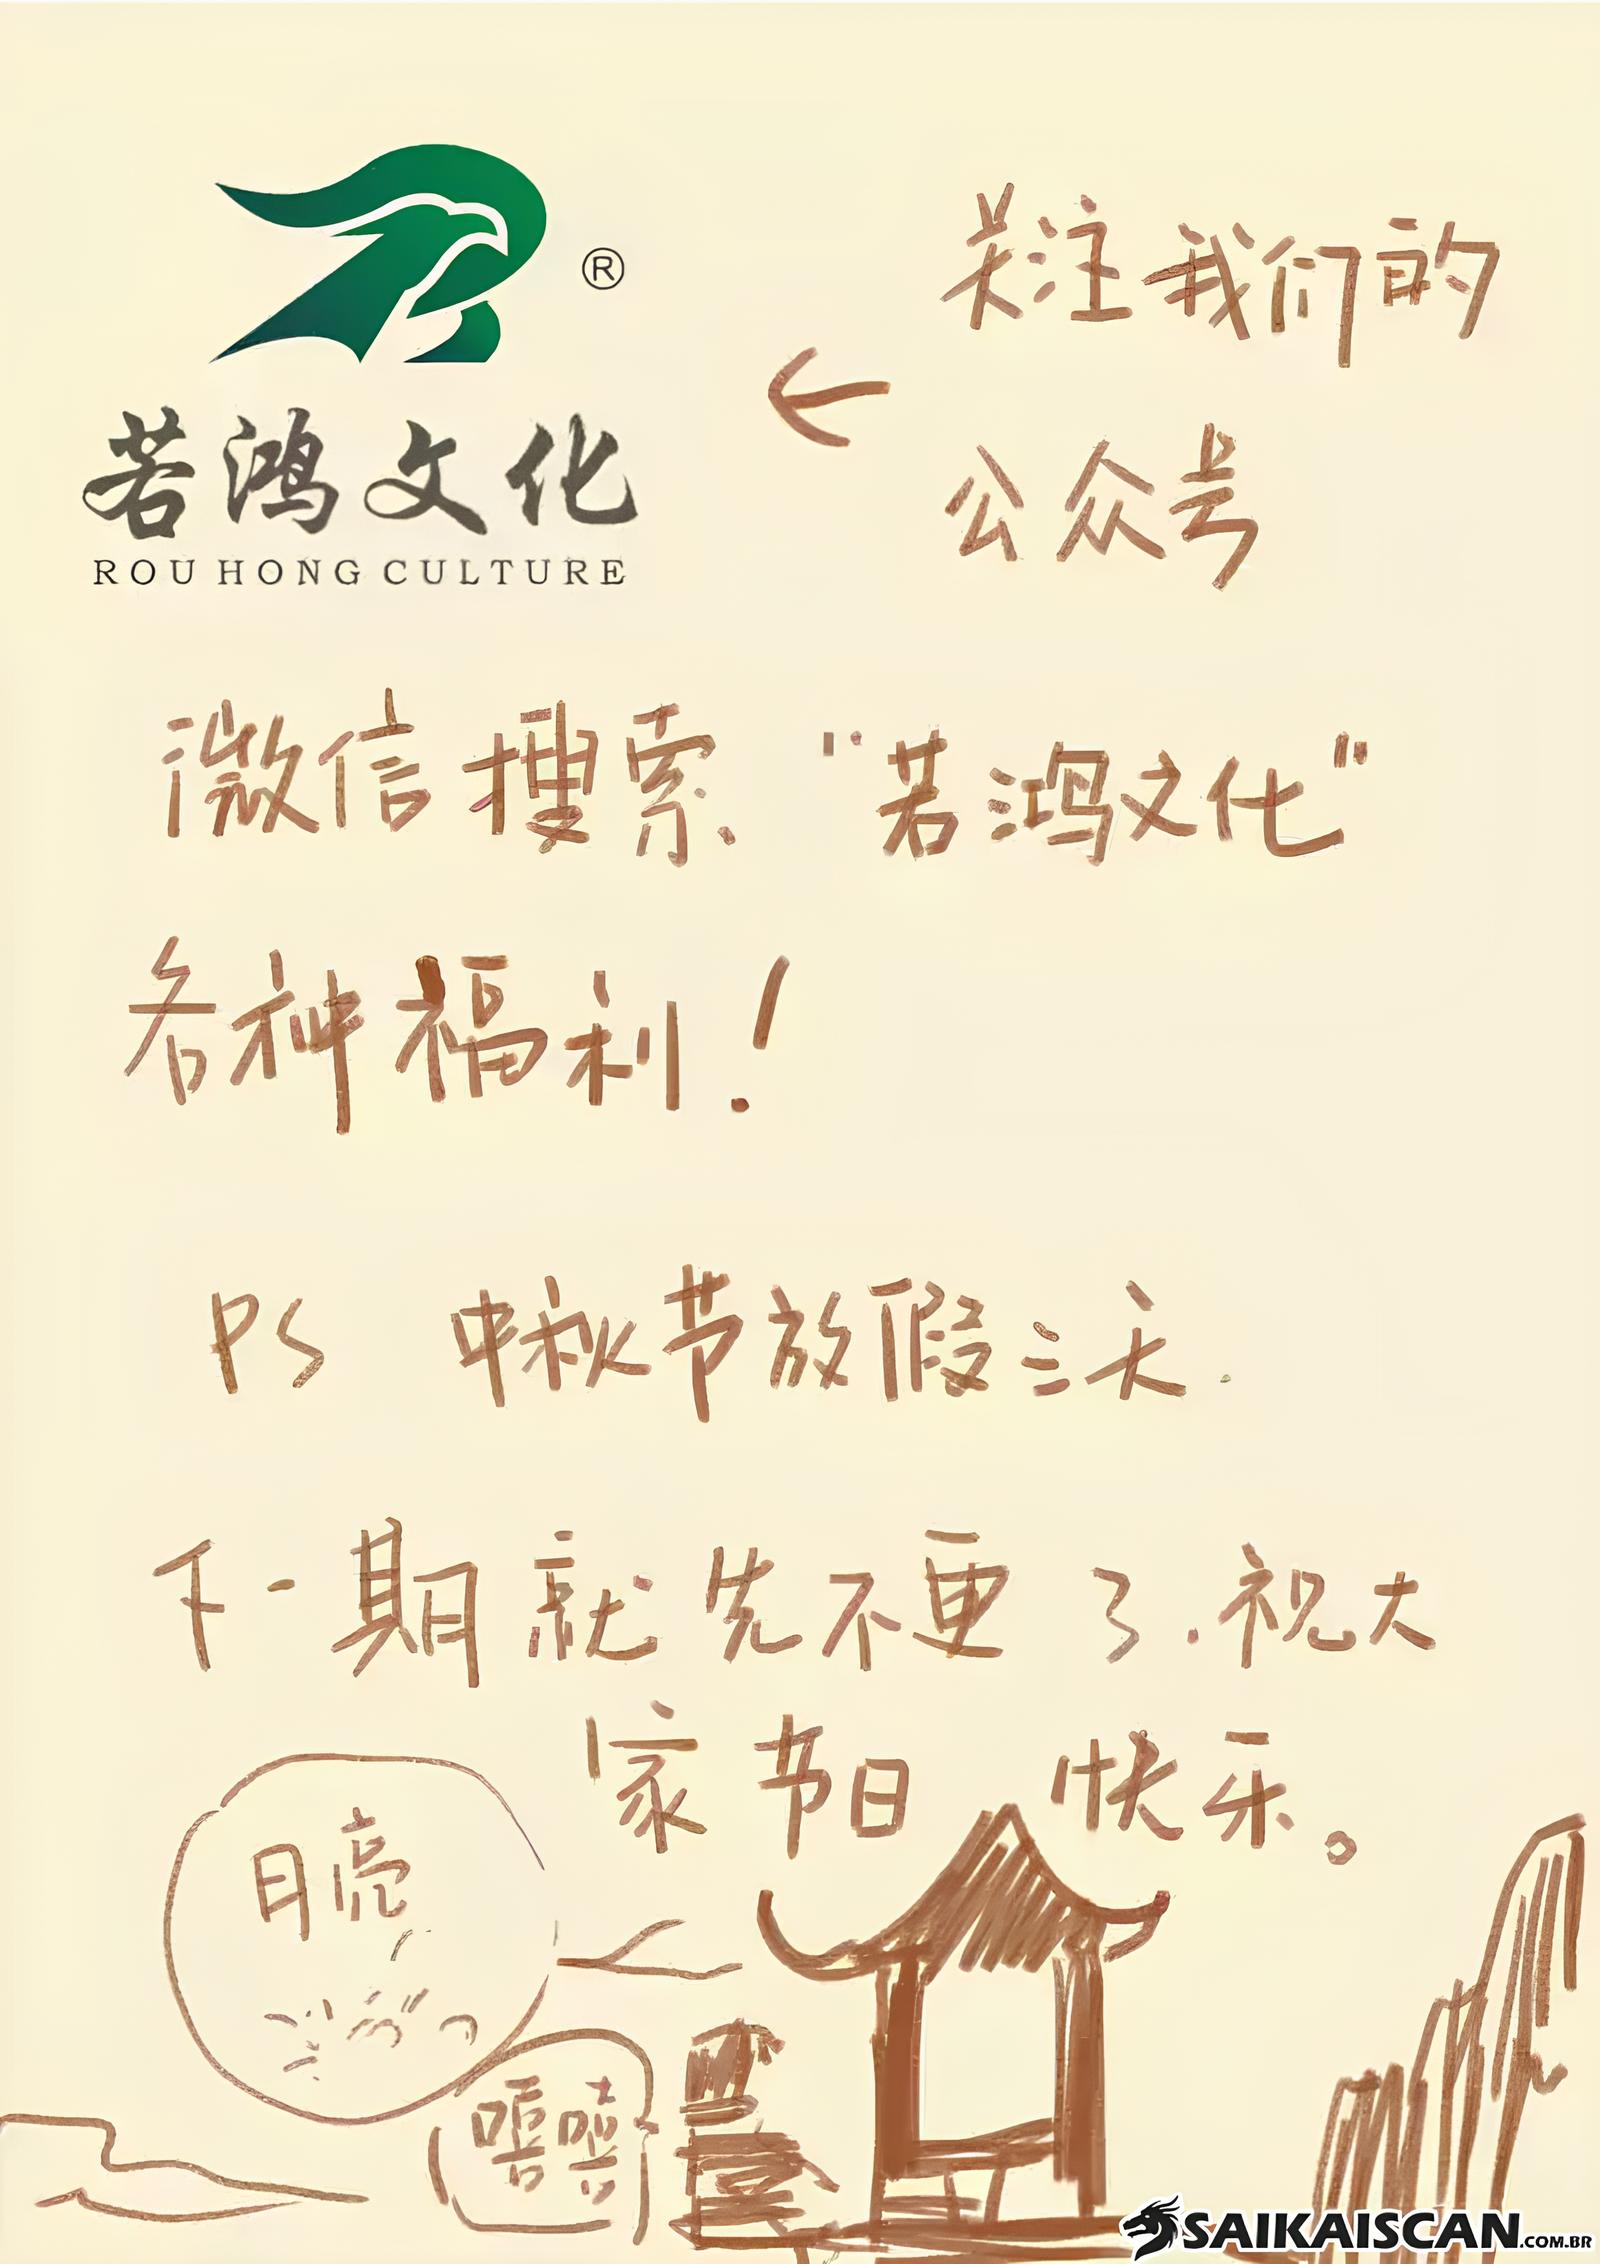 ®
若鸿文化
ROUHONG CULTURE
关注我们的
←
公众号
微信搜索. "若鸿文化"
各种福利!
PS 中秋节放假三天.
下一期就先不更了.祝大
家节日快乐。
月亮
嘻嘻
SAIKAISCAN.COM.BR